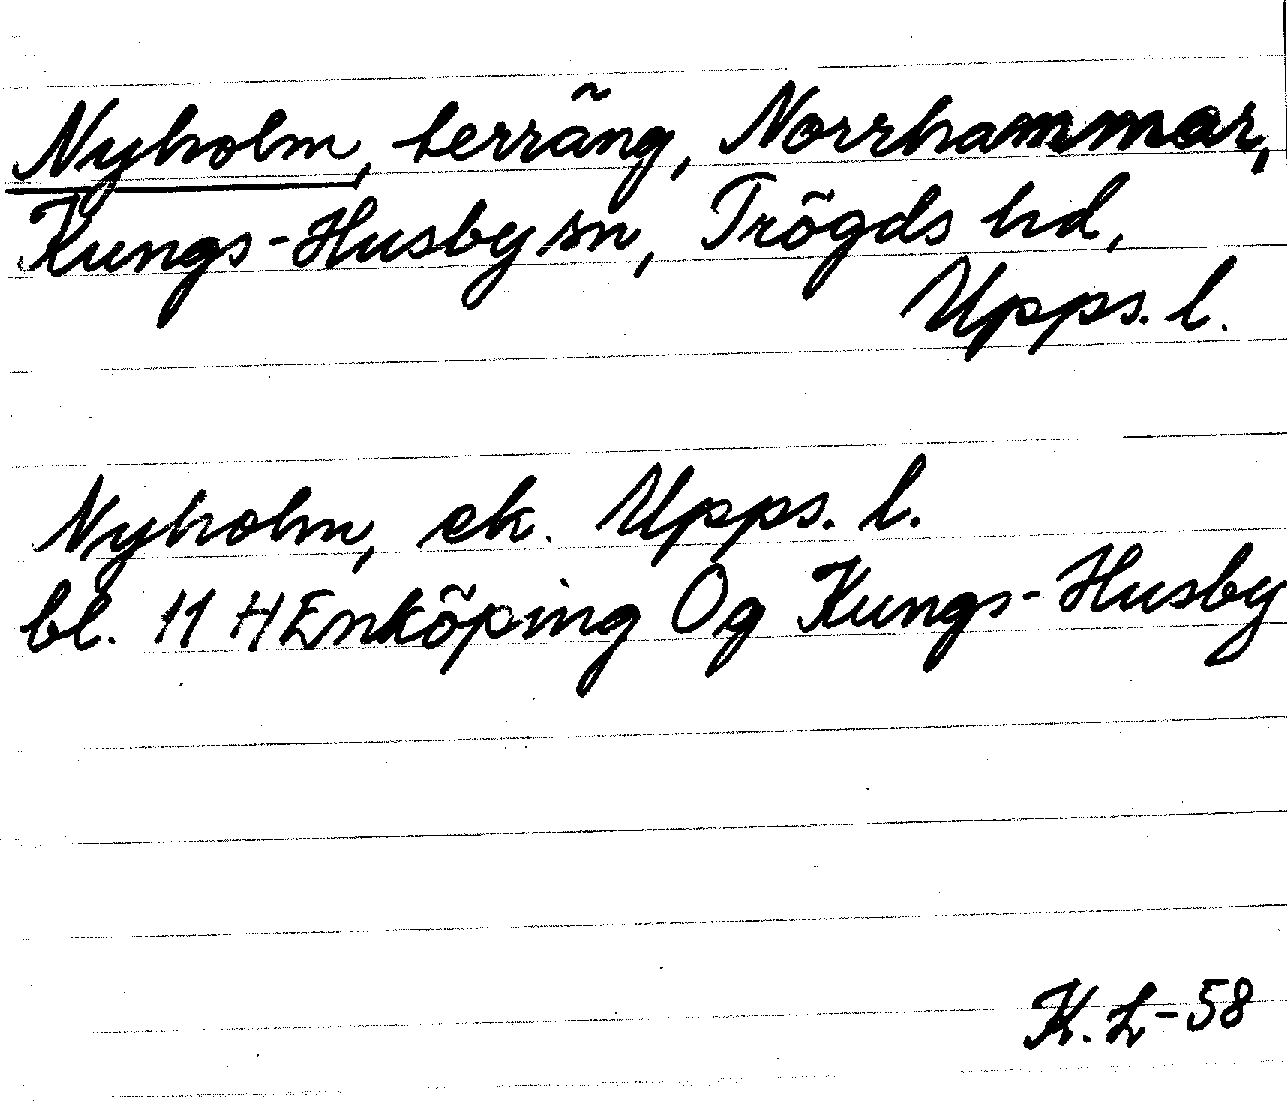 Nyholm, terräng, Norrhammar,
Kungs-Husby sn, Trögds hd,
Upps. l.
Nyholm, ek. Upps. l.
bl. 11 H Enköping Og Kungs-Husby
K. L-58